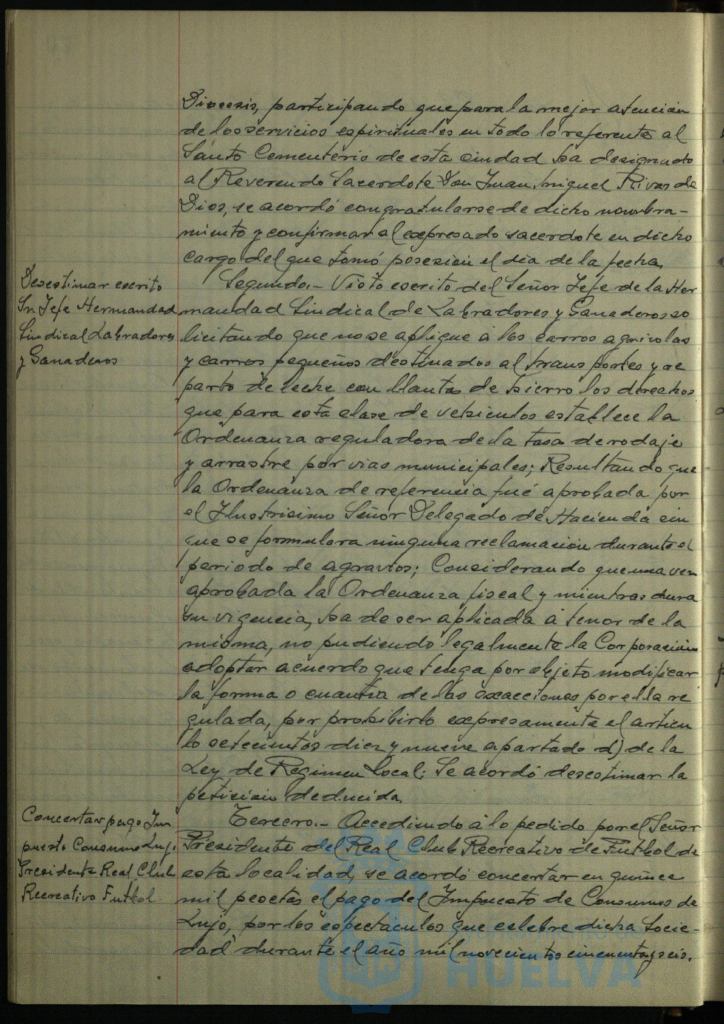 Diocesis, participando que para la mejor atencion
de los servicios espirituales en todo lo referente al
Santo Cementerio de esta ciudad ha designado
al Reverendo Sacerdote Don Juan Miguel Rivas de
Dios, se acordó congratularse de dicho nombra-
miento y confirmar al expresado sacerdote en dicho
cargo del que tomó posesion el dia de la fecha.
Desestimar escrito
Sr Jefe Hermandad
Sindical Labradores
y Ganaderos
Segundo.- Visto escrito del Señor Jefe de la Her
mandad Sindical de Labradores y Ganaderos so
licitando que no se aplique á los carros agricolas
y carros pequeños destinados al transportes y re
parto de leche con llantas de hierro los derechos
que para esta clase de vehiculos establece la
Ordenanza reguladora de la tasa de rodaje
y arrastre por vias municipales; Resultando que
la Ordenanza de referencia fué aprobada por
el Ilustrisimo Señor Delegado de Hacienda sin
que se formulara ninguna reclamacion durante el
periodo de agravios; Considerando que una vez
aprobada la Ordenanza fiscal y mientras dura
su vigencia, ha de ser aplicada á tenor de la
misma, no pudiendo legalmente la Corporacion
adoptar acuerdo que tenga por objeto modificar
la forma o cuantia de las exacciones por ella re
gulada, por prohibirlo expresamente el articu
lo setecientos diez y nueve apartado d) de la
Ley de Regimen Local; Se acordó desestimar la
peticion deducida.
Concertar pago Im
puesto Consumo Lujo
Presidente Real Club
Recreativo Futbol
Tercero.- Accediendo á lo pedido por el Señor
Presidente del Real Club Recreativo de Futbol de
esta localidad, se acordó concertar en quince
mil pesetas el pago del Impuesto de Consumos de
Lujo, por los espectaculos que celebre dicha Socie-
dad durante el año mil novecientos cincuenta y seis.
HUELVA